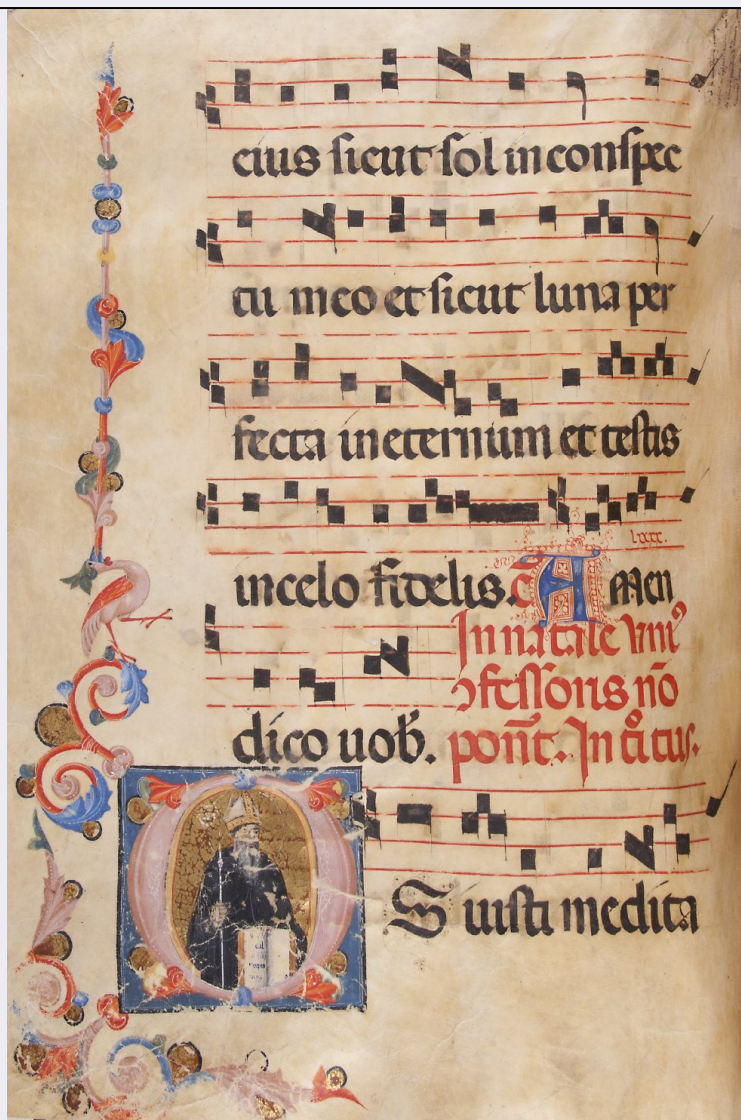 eius sicut sol in conspec
tu meo et sicut luna per
fecta in eternum et testis
in celo fidelis. A men
In natale uniꝰ
ɔfessoris nō
dico uob̄. pont̄.
S iusti medita